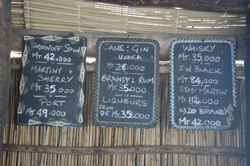 Mt 42.000
MARTINI &
SHERRY
Mt 35.000
PORT
Mt 49.000
CANE: GIN
VODKA
Mt 28.000
BRANDY: RUM
Mt 35.000
LIQUEURS
DE Mt 35.000
WHISKY
Mt 35.000
J.W BLACK
Mt 84.000
REMY MARTIN
Mt 112.000
KO20 BRANDY
Mt 42.000